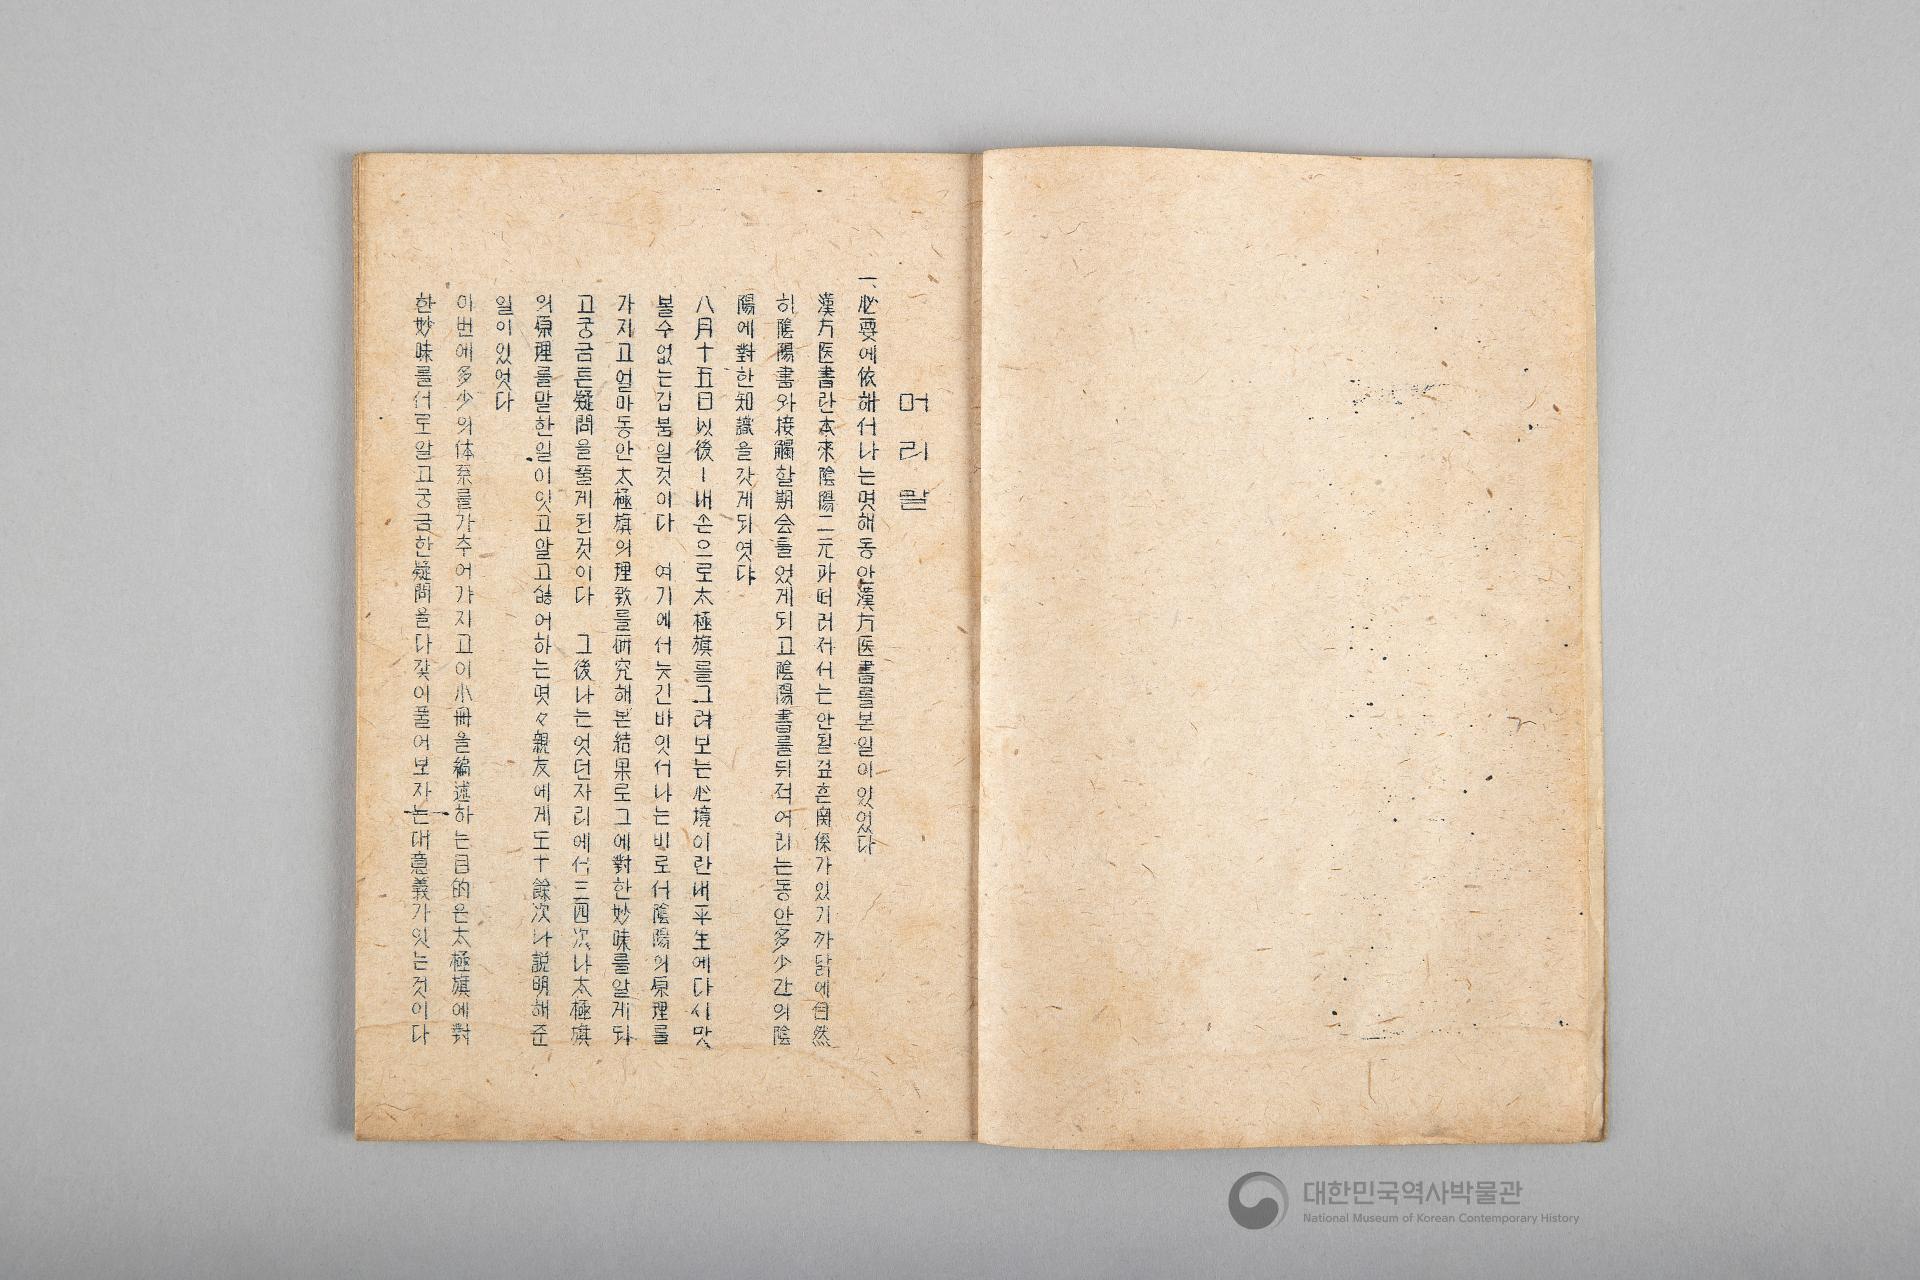 머리말
一、必要에依해서나는몃해동안漢方医書를본일이있었다
漢方医書란本來陰陽二元과떠러저서는안될깊흔関係가있기까닭에自然
히陰陽書와接觸할期会를얻게되고陰陽書를뒤적어리는동안多少간의陰
陽에對한知識을갓게되엿다
八月十五日以後ー내손으로太極旗를그려보는心境이란내平生에다시맛
볼수없는깁붐일것이다 여기에서늣긴바잇서나는비로서陰陽의原理를
가지고얼마동안太極旗의理致를研究해본結果로그에對한妙味를알게되
고궁금튼疑問을풀게된것이다 그後나는엇던자리에서三四次나太極旗
의原理를말한일이잇고알고싶어하는몃々親友에게도十餘次나説明해준
일이있엇다
이번에多少의体系를가추어가지고이小冊을編述하는目的은太極旗에對
한妙味를서로알고궁금한疑問을다갗이풀어보자는대意義가잇는것이다
대한민국역사박물관
National Museum of Korean Contemporary History